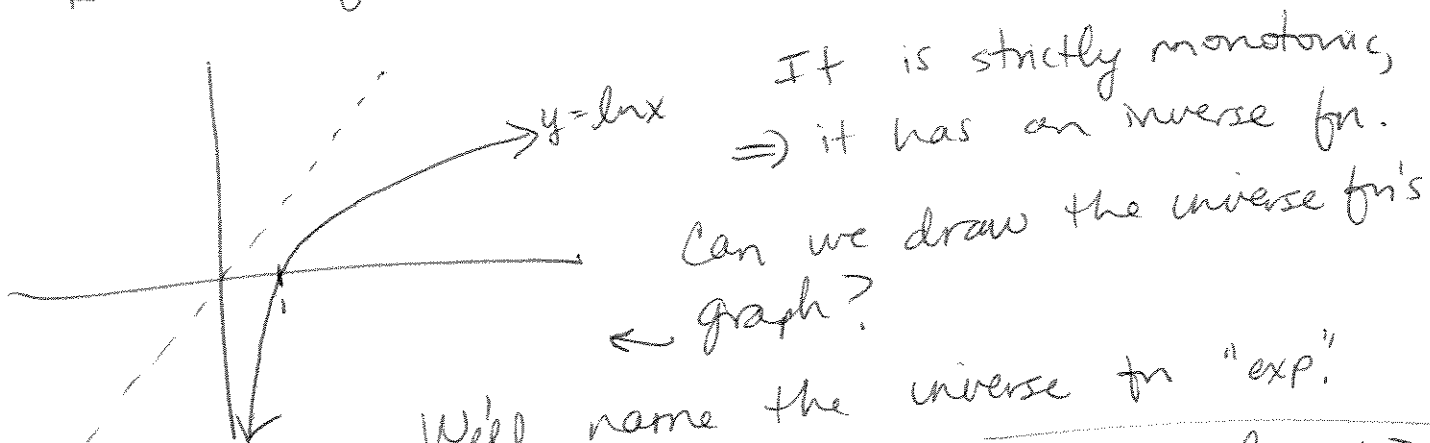 It is strictly monotonic,
y = lnx
⇒ it has an inverse fn.
Can we draw the inverse fn's
← graph?
1
We'll name the inverse fn "exp."